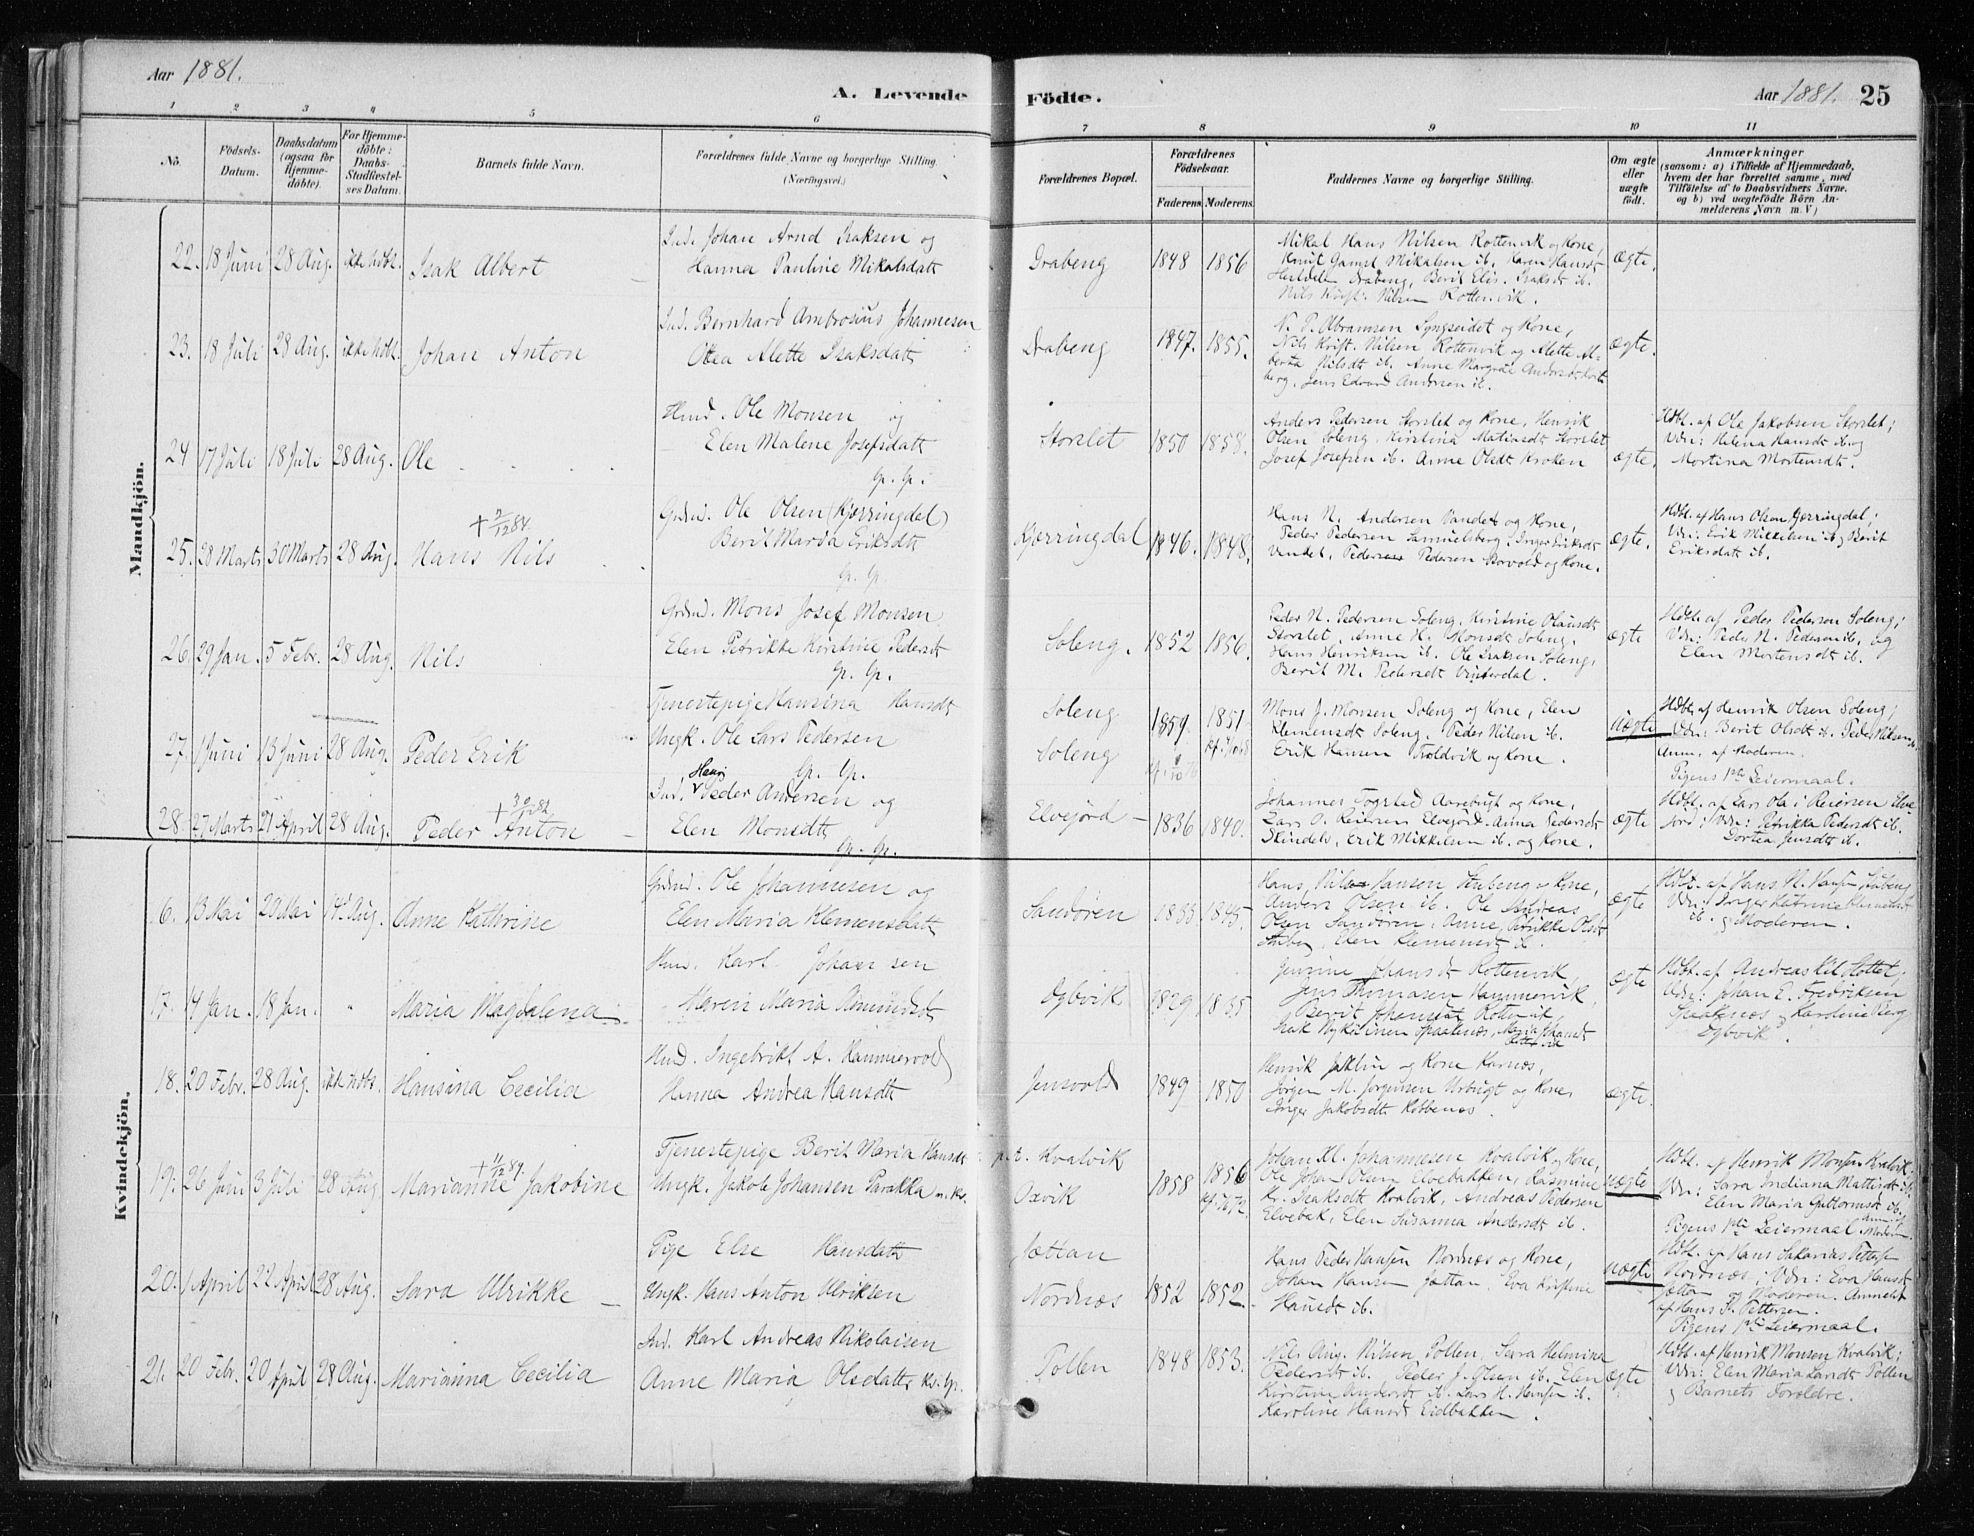 Aar 1881.
A. Levende Födte.
Aar 1881. 25
1 2 3 4 5 6 7 8 9 10 11
No.
Födsels-Datum.
Daabsdatum (ogsaa for Hjemmedöbte).
For Hjemmedöbte: Daabs-Stadfæstelses Datum.
Barnets fulde Navn.
Forældrenes fulde Navne og borgerlige Stilling. (Næringsvei.)
Forældrenes Bopæl.
Forældrenes Födselsaar.
Faderens Moderens
Faddernes Navne og borgerlige Stilling.
Om ægte eller uægte födt.
Anmærkninger
(saasom: a) i Tilfælde af Hjemmedaab,
hvem der har forrettet samme, med
Tilföielse af to Daabsvidners Navne.
og b) ved uægtefödte Börn Anmelderens Navn m. V)
Mandkjön.
22. 18 Juni 28 Aug. ikke hdbt. Isak Albert
Ind. Johan Arnd Isaksen og
Hanna Pauline Mikalsdatt
Drabeng 1848 1856
Mikal Hans Nilsen Rottenvik og Kone,
Knut Gamst Mikalsen ib. Karen Hansdt
Drabeng, Berit Elis. Isaksdt ib.
Nils Krist. Nilsen Rottenvik.
ægte.
23. 18 Juli 28 Aug. ikke hdbt. Johan Anton
Ind. Bernhard Ambrosius Johannesen
Alette Isaksdatt
Drabeng 1847. 1855.
N. P. Abramsen Lyngseidet og Kone,
Nils Krist. Nilsen Rottenvik og Alette Alberta
Nilsdt ib. Anne Margrete Andersdt
Jens Edvard Andersen ib.
ægte.
24 17 Juli 18 Juli 28 Aug. Ole
Husmd. Ole Monsen og
Elen Malene Josefsdatt
Storslet 1850 1858.
Anders Pedersen Storslet og Kone, Henrik
Olsen Soleng. Kirstina Matiasdt Storslet
Josef Josefsen ib. Anne Olsdt Kroken
ægte.
Hdbt. af Ole Jakobsen Storslet;
Vdn: Helena Hansdt ib. og
Mortina Mortensdt.
25. 28 Marts 30 Marts 28 Aug. Hans Nils
Grdmd. Ole Olsen (Kjærringdal)
Berit Maria Eriksdt
Kjærringdal 1846. 1848.
Hans N. Andersen Vandet og Kone,
Peder Pedersen Samuelsberg. Inger Eriksdt
Vandet, Pedersen og Kone.
ægte.
Hdbt. af Hans Olsen Kjærringdal;
Vdn: Erik Mikkelsen ib. og Berit
Eriksdatt ib.
26. 29 Jan. 5 Febr. 28 Aug. Nils
Grdmd. Mons Josef Monsen
Elen Petrikke Kirstine Pedersdt
Soleng. 1852 1856.
Peder N. Pedersen Soleng. Kirstine Olausdt
Storslet, Anne H. Monsdt Soleng.
Hans Henriksen ib. Ole Isaksen Soleng,
Berit M. Pedersdt Vinterdal.
ægte
Hdbt. af Peder Pedersen Soleng;
Vdn: Peder N. Pedersen ib. og
Elen Mortensdt ib.
27. 1 Juni 13 Juni 28 Aug. Peder Erik
Tjenestepige Hansina Hansdt
Ungk. Ole Lars Pedersen
Soleng
Soleng
1859 1851
Mons J. Monsen Soleng og Kone, Elen
Klemensdt Soleng. Peder Nilsen ib.
Erik Hansen Toldvik og Kone.
uægte
Hdbt. af Henrik Olsen Soleng;
Vdn: Berit Olsdt ib. Peder Nilsen ib.
Anm. af Moderen.
Pigens 1ste Leiermaal.
28. 27 Marts 21 April 28 Aug. Peder Anton
Ind. Hans Peder Andersen og
Elen Monsdtt
Elvejord 1836 1840.
Johannes Fogstad Aarebugt og Kone,
Lars O. Reiersen Elvejord. Anna Pedersdt
Skindelv, Erik Mikkelsen ib. og Kone.
ægte
Hdbt. af Lars Ola i Reiersen Elvejord;
Vdn: Petrikke Pedersdt ib.
Dortea Jensdt ib.
Kvindekjön.
6. 13 Mai 20 Mai 14 Aug. Anne Kathrine
Grdmd. Ole Johannesen og
Elen Maria Klemensdatt
Sandøren 1845.
Hans Nils Hansen og Kone,
Anders Olsen ib. Ole Andreas
Olsen Sandören, Anne Petrikke Olsdt
Elen Klemensdt ib.
ægte
Hdbt. af Hans N. Hansen
Inger Katrine
ib. og Moderen.
17. 14 Jan. 18 Jan. " Maria Magdalena
Husmd. Karl Johansen
Maren Maria Amundsdt
Ogbvik 1829 1835
Jensine Johansdt Rottenvik,
Jens Thomasen Hammervik,
Berit Johansdt
ægte
Hdbt. af Andreas
Vdn: Johan E. Fredriksen
Spaakenæs og Karoline Berg
Ogbvik.
18. 20 Febr. 28 Aug. ikke hdbt. Hansina Cecilia
Husmd. Ingebrikt A. Hammervold
Hanna Andrea Hansdtt
Jensvold 1849 1850
Henrik Jaklin og Kone Karnæs,
Jörgen M. Jörgensen Urbugt og Kone
Inger Jakobsdt Kobbenæs.
ægte.
19. 26 Juni 3 Juli 28 Aug. Marianne Jakobine
Tjenestepige Berit Maria Hansdt
Ungk. Jakob Johansen Parakka
p.t. Kvalvik
Oxvik
1858 1856
Johan Kl. Johannesen Kvalvik og Kone,
Ole Johan Olsen Elvebakken, Rasmine
Kr. Isaksdt Kvalvik, Andreas Pedersen
Elvebak, Elen Susanna Andersdt ib.
uægte
Hdbt. af Henrik Monsen Kvalvik.
Vdn: Sara Indiana Mattisdt ib.
Elen Maria Guttormsdt ib.
Pigens 1ste Leiermaal.
20. 1 April 22 April 28 Aug. Sara Ulrikke
Pige Else Hansdatt
Ungk. Hans Anton Ulriksen
Jættan
Nordnæs
1852 1852
Hans Peder Hansen Nordnæs og Kone,
Johan Hansen Jættan. Eva Kirstine
Hansdt ib.
uægte
Hdbt. af Hans Sakarias Pettersen
Nordnæs; Vdn: Eva Hansdt
Jættan og Moderen. Anmeldt
af Hans S. Pettersen.
Pigens 1ste Leiermaal.
21. 20 Febr. 20 April 28 Aug. Marianna Cecilia
Ind. Karl Andreas Nikolaisen
Anne Maria Olsdatt
Pollen 1848 1853.
Nils Aug. Nilsen Pollen, Sara Helmina
Pedersdt ib. Peder J. Olsen ib. Elen
Kirstine Andersdt ib. Lars H. Hansen ib.
Karoline Hansdt Eidbakken.
ægte
Hdbt. af Henrik Monsen Kvalvik;
Vdn: Elen Maria Larsdt Pollen
og Barnets Foreldre.